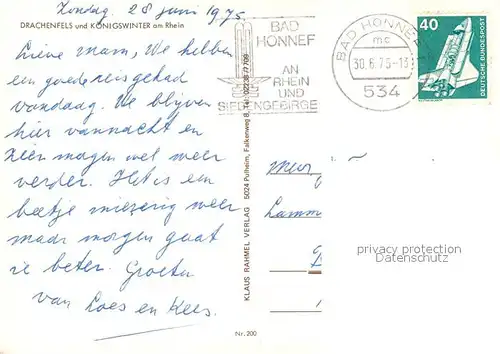 Zondag. 28 juni 1975
DRACHENFELS und KÖNIGSWINTER am Rhein
Lieve Mam, We hebben
een goede reis gehad
vandaag. We blijven
hier vannacht en
zien morgen wel weer
verder. Het is een
beetje miezerig weer
maar morgen gaat
ie beter. Groeten
van Loes en Kees.
KLAUS RAHMEL VERLAG 5024 Pulheim, Falkenweg 8, Tel. 02238/7709
Nr. 200
BAD
HONNEF
AN
RHEIN
UND
SIEBENGEBIRGE
BAD HONNEF
mc
30.6.75-13
534
40
DEUTSCHE BUNDESPOST
Mevr
Lamm
privacy protection
Datenschutz